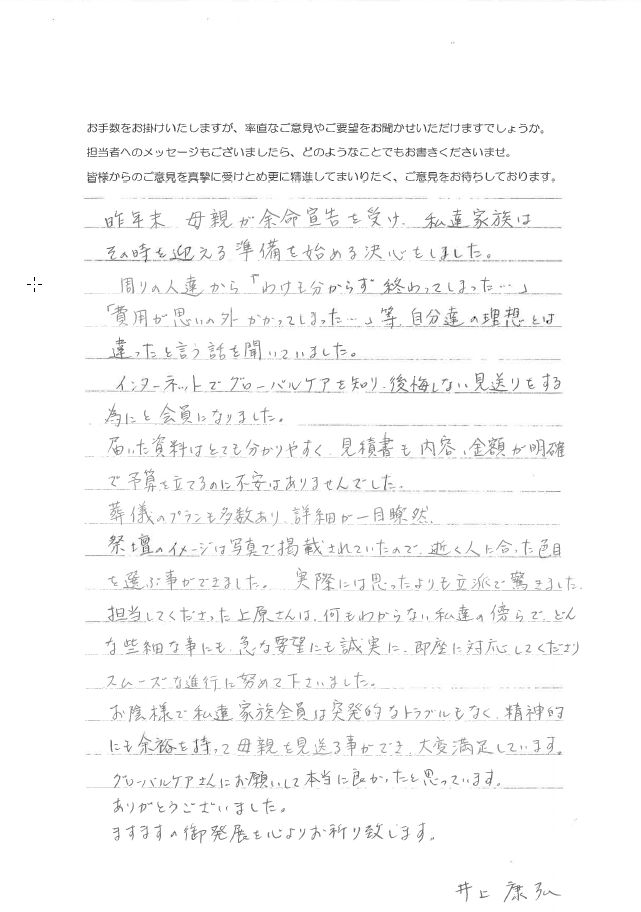 お手数をお掛けいたしますが、率直なご意見やご要望をお聞かせいただけますでしょうか。
担当者へのメッセージもございましたら、どのようなことでもお書きくださいませ。
皆様からのご意見を真摯に受けとめ更に精進してまいりたく、ご意見をお待ちしております。
昨年末 母親が余命宣告を受け、私達家族は
その時を迎える準備を始める決心をしました。
周りの人達から「わけも分からず終わってしまった…」
「費用が思いの外かかってしまった…」等、自分達の理想とは
違ったと言う話を聞いていました。
インターネットでグローバルケアを知り、後悔しない見送りをする
為にと会員になりました。
届いた資料はとても分かりやすく、見積書も内容、金額が明確
で予算を立てるのに不安はありませんでした。
葬儀のプランも多数あり、詳細が一目瞭然、
祭壇のイメージは写真で掲載されていたので、逝く人に合った色目
を選ぶ事ができました。 実際には思ったよりも立派で驚きました。
担当してくださった上原さんは、何もわからない私達の傍らで、どん
な些細な事にも、急な要望にも誠実に、即座に対応してくださり
スムーズな進行に努めて下さいました。
お陰様で私達家族全員は突発的なトラブルもなく、精神的
にも余裕を持って母親を見送る事ができ、大変満足しています。
グローバルケアさんにお願いして本当に良かったと思っています。
ありがとうございました。
ますますの御発展を心よりお祈り致します。
井上 康弘